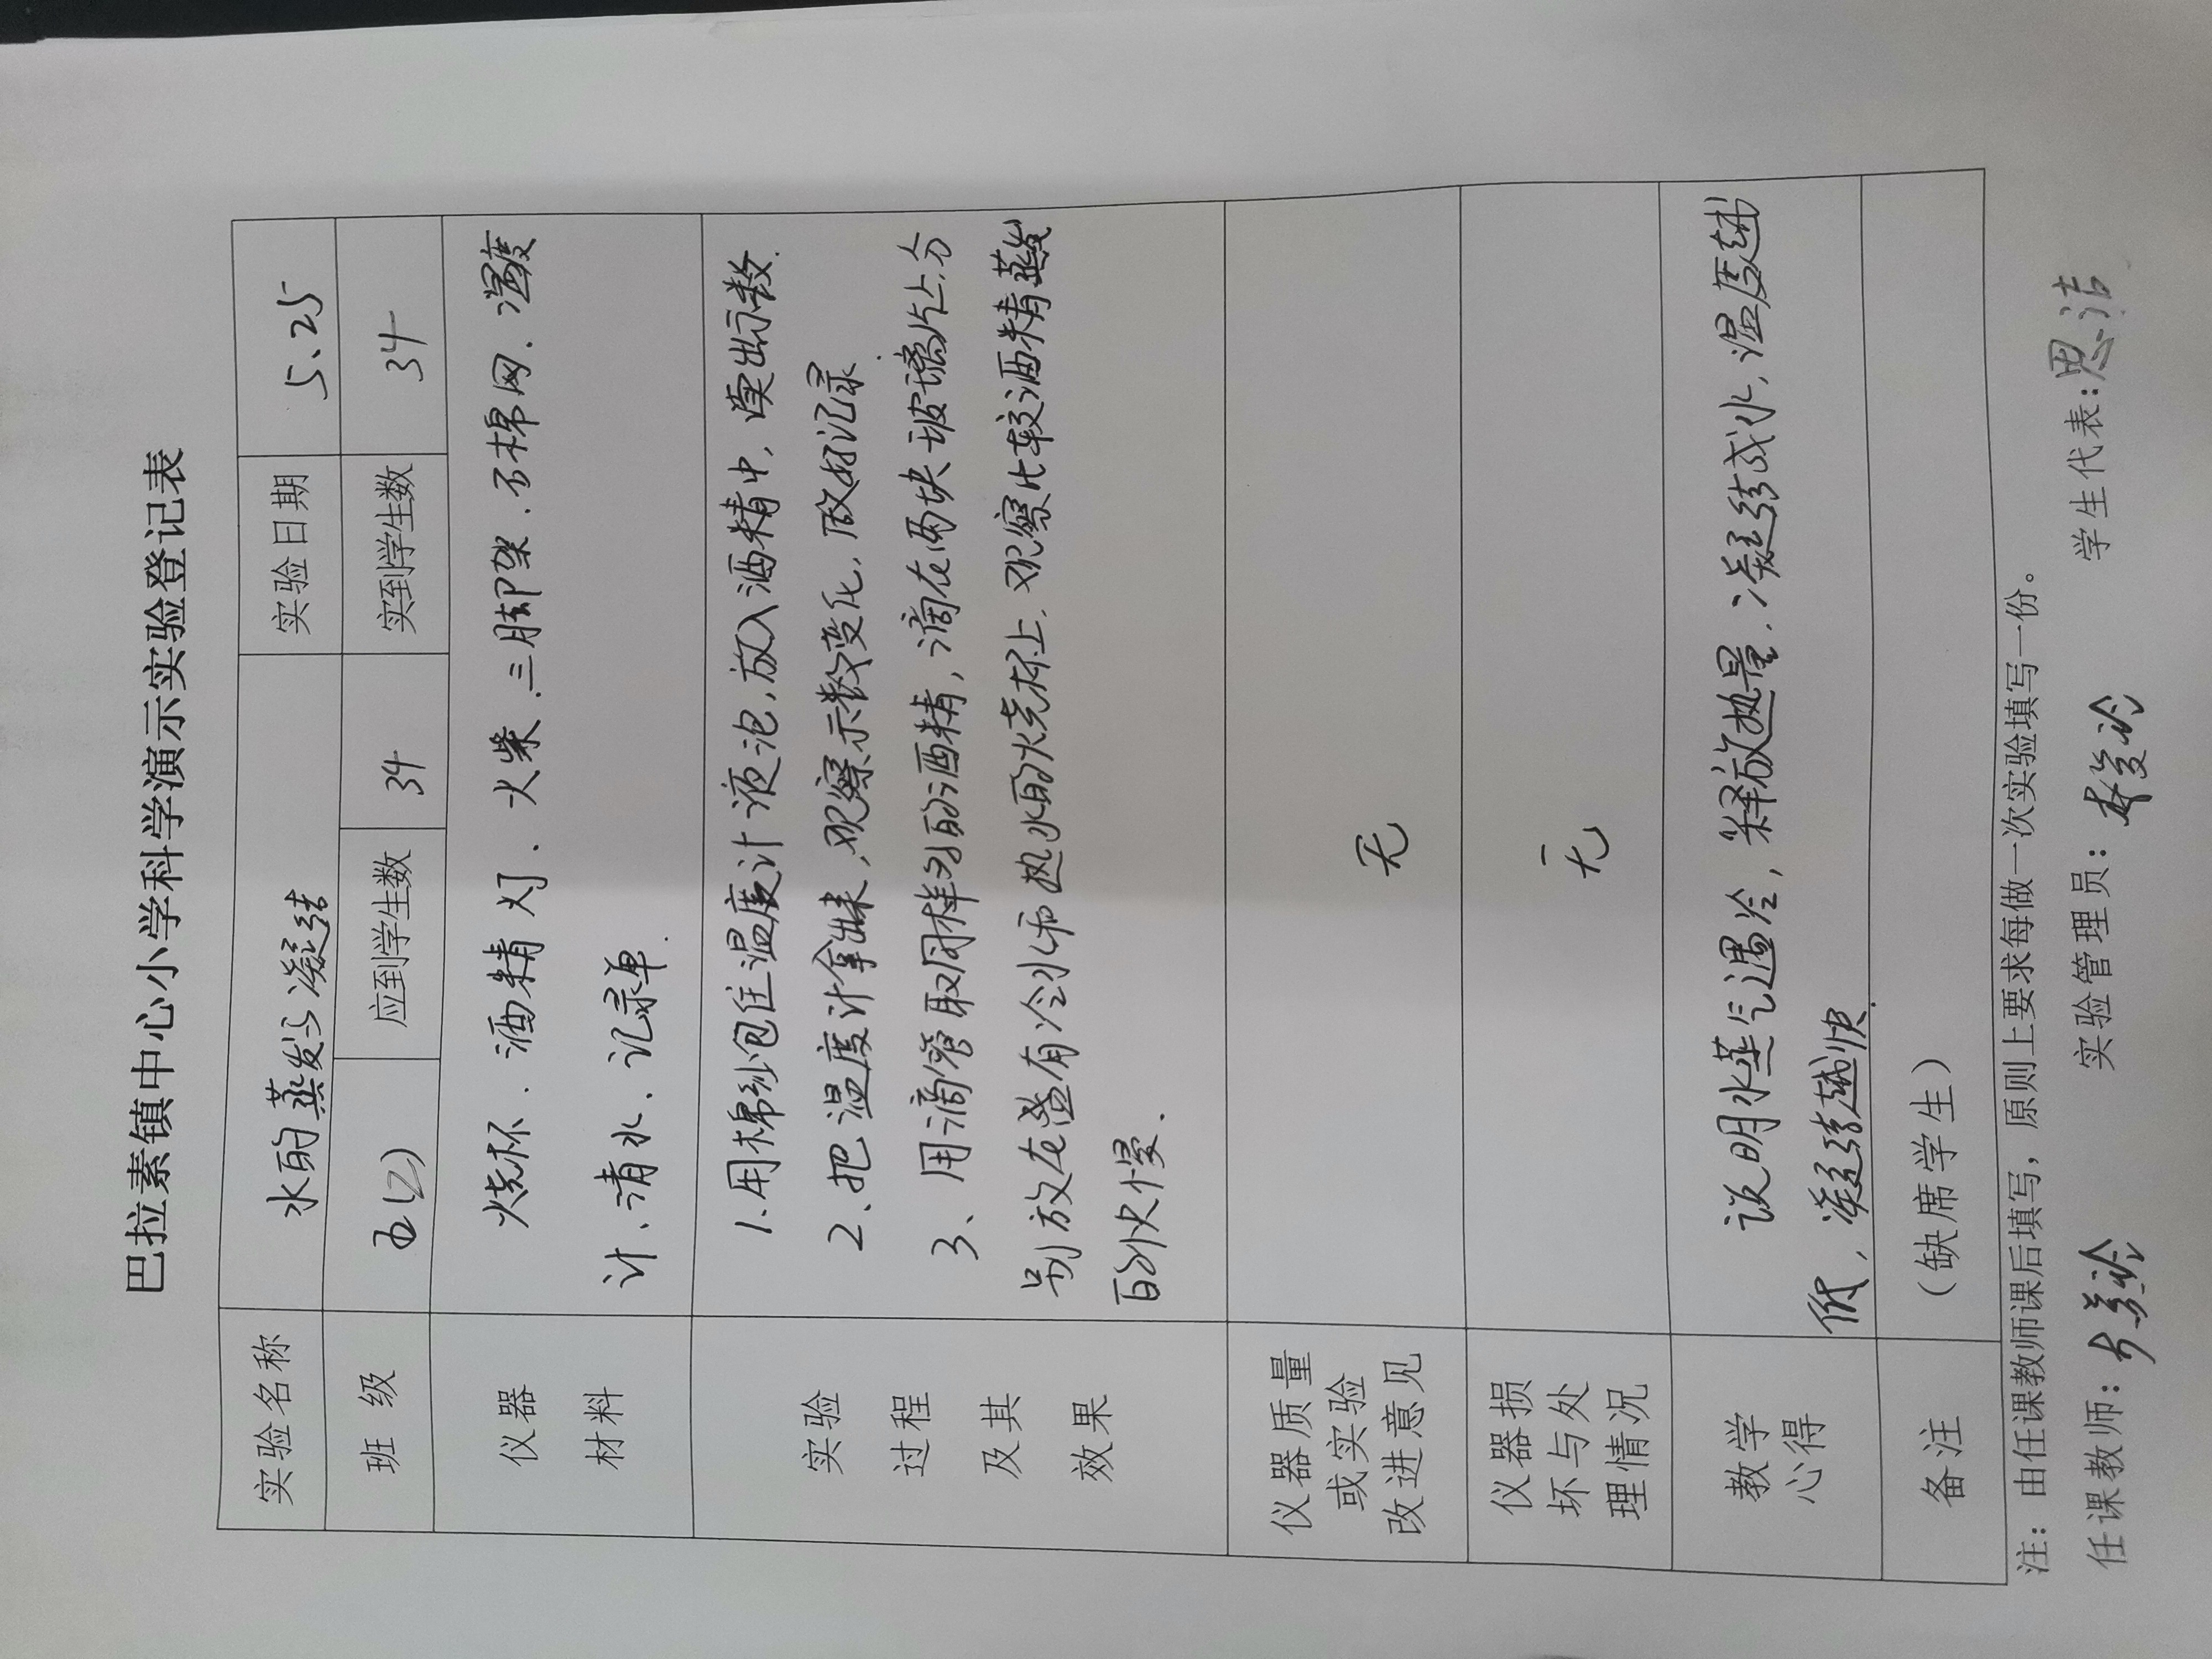 巴拉素镇中心小学科学演示实验登记表
实验名称 水的蒸发与凝结 实验日期 5、25
班 级 五(2) 应到学生数 34 实到学生数 34
仪器
材料
烧杯、酒精灯、火柴、三脚架、石棉网、温度
计、清水、记录单.
实验
过程
及其
效果
1、用棉纱包住温度计液泡，放入酒精中，读出示数.
2、把温度计拿出来，观察示数变化，做好记录.
3、用滴管取同样多的酒精，滴在两块玻璃片上.分
别放在盛有冷水和热水的烧杯上，观察比较酒精蒸发
的快慢.
仪器质量
或实验
改进意见
无
仪器损
坏与处
理情况
无
教学
心得
说明水蒸气遇冷，释放热量，凝结成水，温度越
低，凝结越快.
备注 （缺席学生）
注：由任课教师课后填写，原则上要求每做一次实验填写一份。
任课教师： 实验管理员： 学生代表：思洁